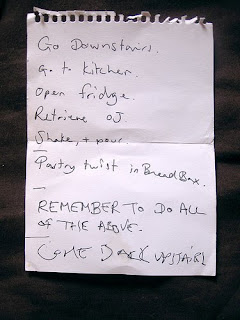 Go Downstairs.
Go to Kitchen.
Open fridge.
Retrieve OJ.
Shake, + pour.
Pastry twist in Bread Box.
—
REMEMBER TO DO ALL
OF THE ABOVE.
—
COME BACK UPSTAIRS